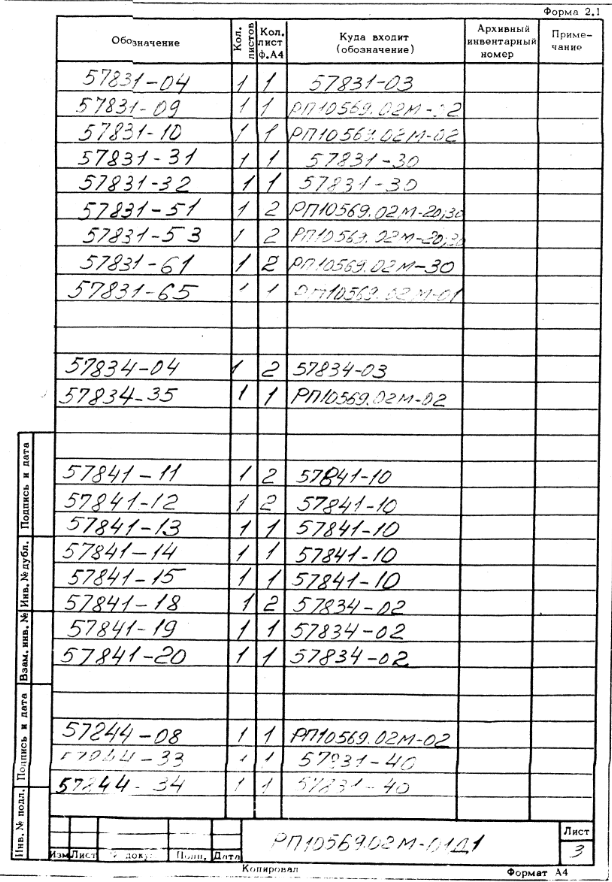 Форма 2.1
Обозначение Кол. листов Кол. лист ф.А4 Куда входит (обозначение) Архивный инвентарный номер Примечание
57831-04 1 1 57831-03
57831-09 1 1 РП10569.02М-
57831-10 1 1 РП10569.02М-02
57831-31 1 1 57831-30
57831-32 1 1 57831-30
57831-51 1 2 РП10569.02М-20,30
57831-53 1 2 РП10569.02М-20,30
57831-61 1 2 РП10569.02М-30
57831-65 1 1 РП10569.02М-01
57834-04 1 2 57834-03
57834-35 1 1 РП10569.02М-02
57841-11 1 2 57841-10
57841-12 1 2 57841-10
57841-13 1 1 57841-10
57841-14 1 1 57841-10
57841-15 1 1 57841-10
57841-18 1 2 57834-02
57841-19 1 1 57834-02
57841-20 1 1 57834-02
57244-08 1 1 РП10569.02М-02
57244-33 1 1 57831-40
57244-34 1 1 57831-40
Подпись и дата
Инв. № дубл.
Взам. инв. №
Подпись и дата
Инв. № подл.
РП10569.02М-01Д1
Лист
3
Изм Лист № докум. Подп. Дата
Копировал
Формат А4